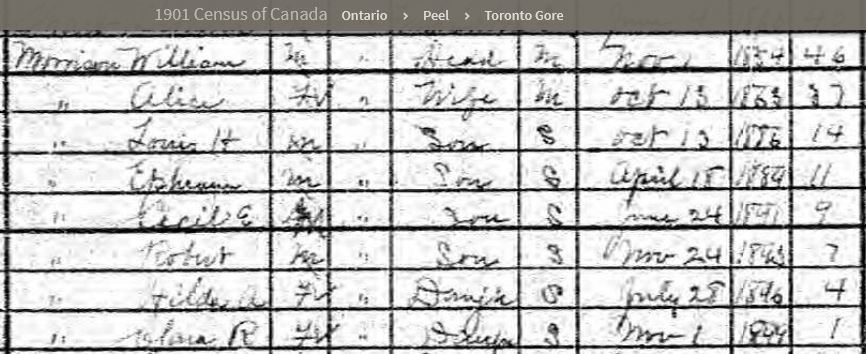 1901 Census of Canada Ontario › Peel › Toronto Gore
Morrison William M " Head M Nov 1 1854 46
" Alice F " Wife M Oct 13 1863 37
" Louis H M " Son S Oct 13 1886 14
" M " Son S April 18 1889 11
" Cecil E M " Son S June 24 1891 9
" Robert M " Son S Nov 24 1893 7
" Hilda A F " Daugh S July 28 1896 4
" R F " Daugh S Nov 1 1899 1